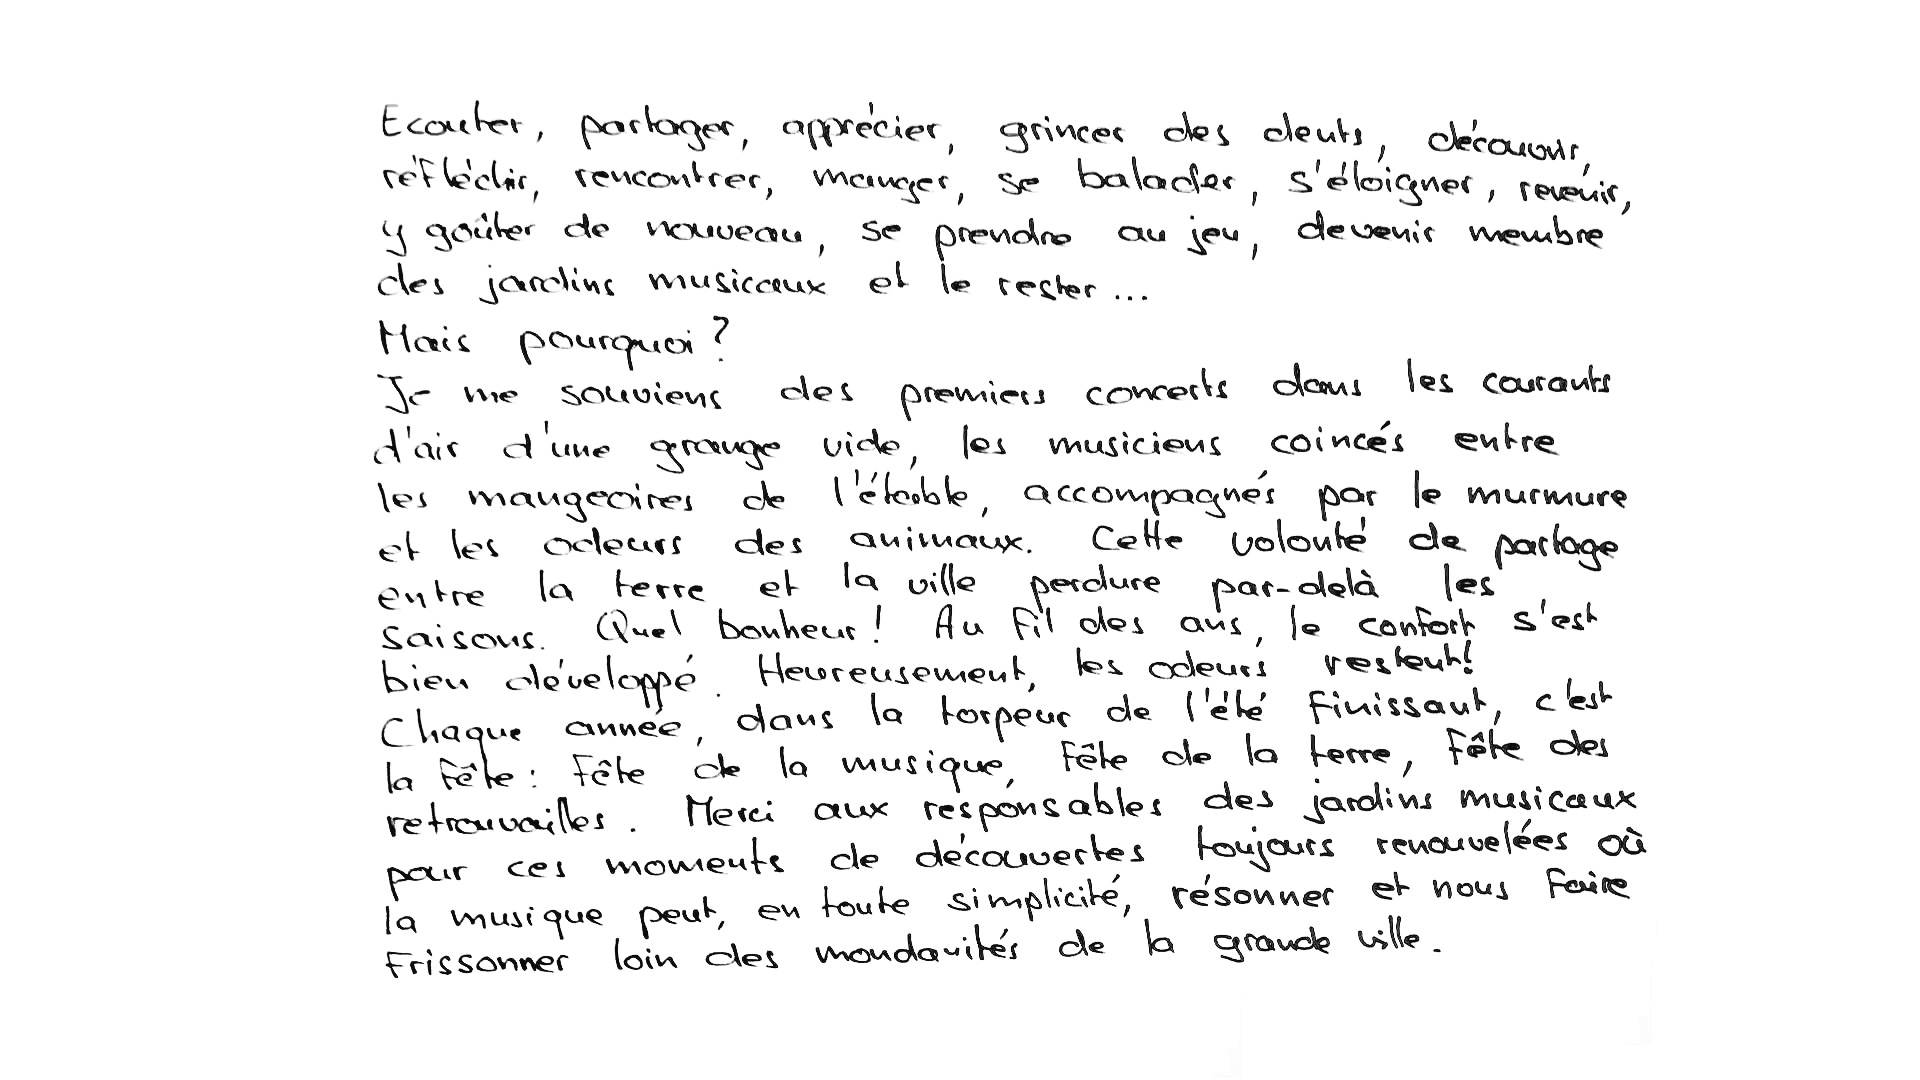 Ecouter, partager, apprécier, grincer des dents, découvrir,
réfléchir, rencontrer, manger, se balader, s'éloigner, revenir,
y goûter de nouveau, se prendre au jeu, devenir membre
des jardins musicaux et le rester...
Mais pourquoi ?
Je me souviens des premiers concerts dans les courants
d'air d'une grange vide, les musiciens coincés entre
les mangeoires de l'étable, accompagnés par le murmure
et les odeurs des animaux. Cette volonté de partage
entre la terre et la ville perdure par-delà les
saisons. Quel bonheur ! Au fil des ans, le confort s'est
bien développé. Heureusement, les odeurs restent !
Chaque année, dans la torpeur de l'été finissant, c'est
la fête : fête de la musique, fête de la terre, fête des
retrouvailles. Merci aux responsables des jardins musicaux
pour ces moments de découvertes toujours renouvelées où
la musique peut, en toute simplicité, résonner et nous faire
frissonner loin des mondanités de la grande ville.